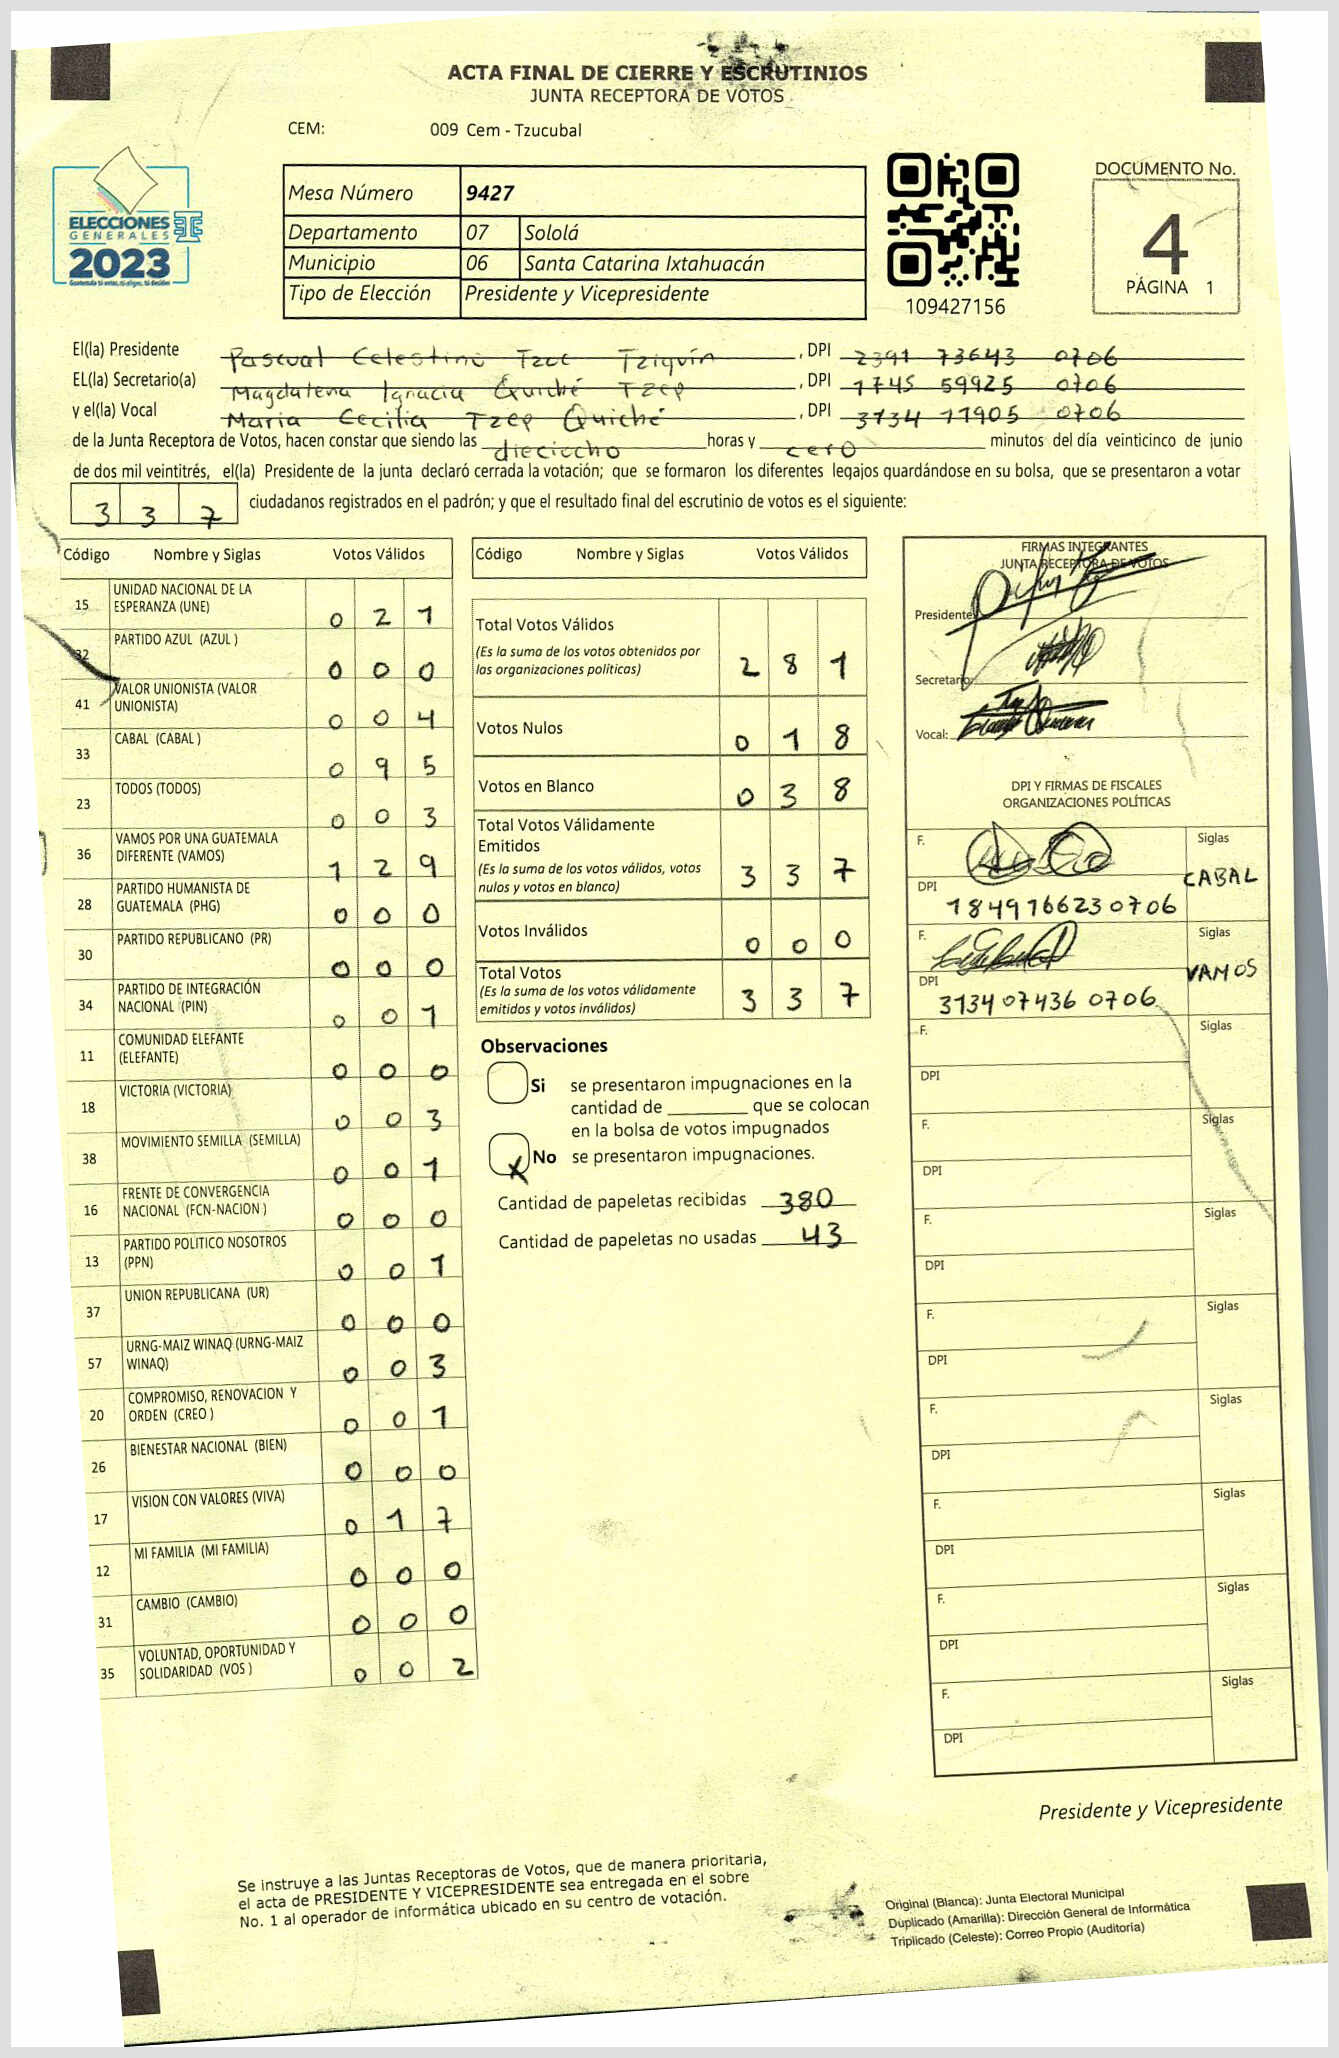 ACTA FINAL DE CIERRE Y ESCRUTINIOS
JUNTA RECEPTORA DE VOTOS
CEM: 009 Cem - Tzucubal
ELECCIONES
GENERALES
2023
Mesa Número 9427
Departamento 07 Sololá
Municipio 06 Santa Catarina Ixtahuacán
Tipo de Elección Presidente y Vicepresidente
109427156
DOCUMENTO No.
4
PÁGINA 1
El(la) Presidente Pascual Celestino Tzoc Tziquín, DPI 2391 73643 0706
EL(la) Secretario(a) Magdalena Ignacia Quiché Tzep, DPI 1745 59925 0706
y el(la) Vocal Maria Cecilia Tzep Quiché, DPI 3734 77905 0706
de la Junta Receptora de Votos, hacen constar que siendo las dieciocho horas y cero minutos del día veinticinco de junio
de dos mil veintitrés, el(la) Presidente de la junta declaró cerrada la votación; que se formaron los diferentes legajos guardándose en su bolsa, que se presentaron a votar
337 ciudadanos registrados en el padrón; y que el resultado final del escrutinio de votos es el siguiente:
Código Nombre y Siglas Votos Válidos
15 UNIDAD NACIONAL DE LA
ESPERANZA (UNE) 0 2 1
32 PARTIDO AZUL (AZUL ) 0 0 0
41 VALOR UNIONISTA (VALOR
UNIONISTA) 0 0 4
33 CABAL (CABAL ) 0 9 5
23 TODOS (TODOS) 0 0 3
36 VAMOS POR UNA GUATEMALA
DIFERENTE (VAMOS) 1 2 9
28 PARTIDO HUMANISTA DE
GUATEMALA (PHG) 0 0 0
30 PARTIDO REPUBLICANO (PR) 0 0 0
34 PARTIDO DE INTEGRACIÓN
NACIONAL (PIN) 0 0 1
11 COMUNIDAD ELEFANTE
(ELEFANTE) 0 0 0
18 VICTORIA (VICTORIA) 0 0 3
38 MOVIMIENTO SEMILLA (SEMILLA) 0 0 1
16 FRENTE DE CONVERGENCIA
NACIONAL (FCN-NACION ) 0 0 0
13 PARTIDO POLITICO NOSOTROS
(PPN) 0 0 1
37 UNION REPUBLICANA (UR) 0 0 0
57 URNG-MAIZ WINAQ (URNG-MAIZ
WINAQ) 0 0 3
20 COMPROMISO, RENOVACION Y
ORDEN (CREO ) 0 0 1
26 BIENESTAR NACIONAL (BIEN) 0 0 0
17 VISION CON VALORES (VIVA) 0 1 7
12 MI FAMILIA (MI FAMILIA) 0 0 0
31 CAMBIO (CAMBIO) 0 0 0
35 VOLUNTAD, OPORTUNIDAD Y
SOLIDARIDAD (VOS ) 0 0 2
Código Nombre y Siglas Votos Válidos
Total Votos Válidos
(Es la suma de los votos obtenidos por
las organizaciones políticas) 2 8 1
Votos Nulos 0 1 8
Votos en Blanco 0 3 8
Total Votos Válidamente
Emitidos
(Es la suma de los votos válidos, votos
nulos y votos en blanco) 3 3 7
Votos Inválidos 0 0 0
Total Votos
(Es la suma de los votos válidamente
emitidos y votos inválidos) 3 3 7
Observaciones
Si se presentaron impugnaciones en la
cantidad de ________ que se colocan
en la bolsa de votos impugnados
X No se presentaron impugnaciones.
Cantidad de papeletas recibidas 380
Cantidad de papeletas no usadas 43
FIRMAS INTEGRANTES
JUNTA RECEPTORA DE VOTOS
Presidente
Secretario:
Vocal:
DPI Y FIRMAS DE FISCALES
ORGANIZACIONES POLÍTICAS
F. Siglas
CABAL
DPI 1849766230706
F. Siglas
VAMOS
DPI 3134 07436 0706
F. Siglas
DPI
F. Siglas
DPI
F. Siglas
DPI
F. Siglas
DPI
F. Siglas
DPI
F. Siglas
DPI
F. Siglas
DPI
F. Siglas
DPI
Presidente y Vicepresidente
Se instruye a las Juntas Receptoras de Votos, que de manera prioritaria,
el acta de PRESIDENTE Y VICEPRESIDENTE sea entregada en el sobre
No. 1 al operador de informática ubicado en su centro de votación.
Original (Blanca): Junta Electoral Municipal
Duplicado (Amarilla): Dirección General de Informática
Triplicado (Celeste): Correo Propio (Auditoría)